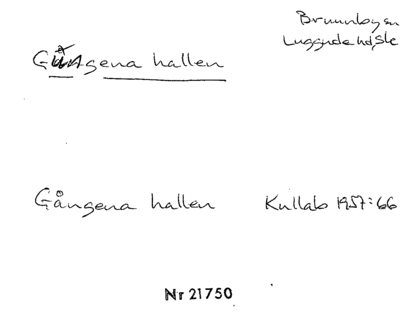 Brunnby sn
Luggude hd, Sk
Gångena hallen
Gångena hallen Kullab 1957:66
Nr 21750